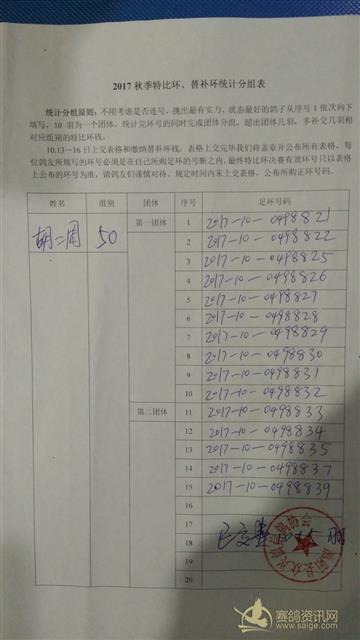 2017 秋季特比环、替补环统计分组表
统计分组原则：不用考虑是否连号，挑出最有实力、状态最好的鸽子从序号 1 依次向下
填写，10 羽为一个团体，统计完环号的同时完成团体分组，超出团体几羽，多补交几羽相
对应组别的特比环钱。
10.13—16 日上交表格和缴纳替补环钱，表格上交完毕我们将盖章并公布所有表格，每
位鸽友所填写的环号必须是在自己所购足环的号断之内，最终特比环决赛有效环号只以表格
上公布的环号为准，请鸽友们谨慎对待。规定时间内未上交表格，公布所购正环号码。
姓名 组别 团体 序号 足环号码
胡二周 50 第一团体 1 2017-10-0498821
2 2017-10-0498822
3 2017-10-0498825
4 2017-10-0498826
5 2017-10-0498827
6 2017-10-0498828
7 2017-10-0498829
8 2017-10-0498830
9 2017-10-0498831
10 2017-10-0498832
第二团体 11 2017-10-0498833
12 2017-10-0498834
13 2017-10-0498835
14 2017-10-0498837
15 2017-10-0498839
16
17
18 已交费
19
20
赛鸽资讯网
www.saige.com